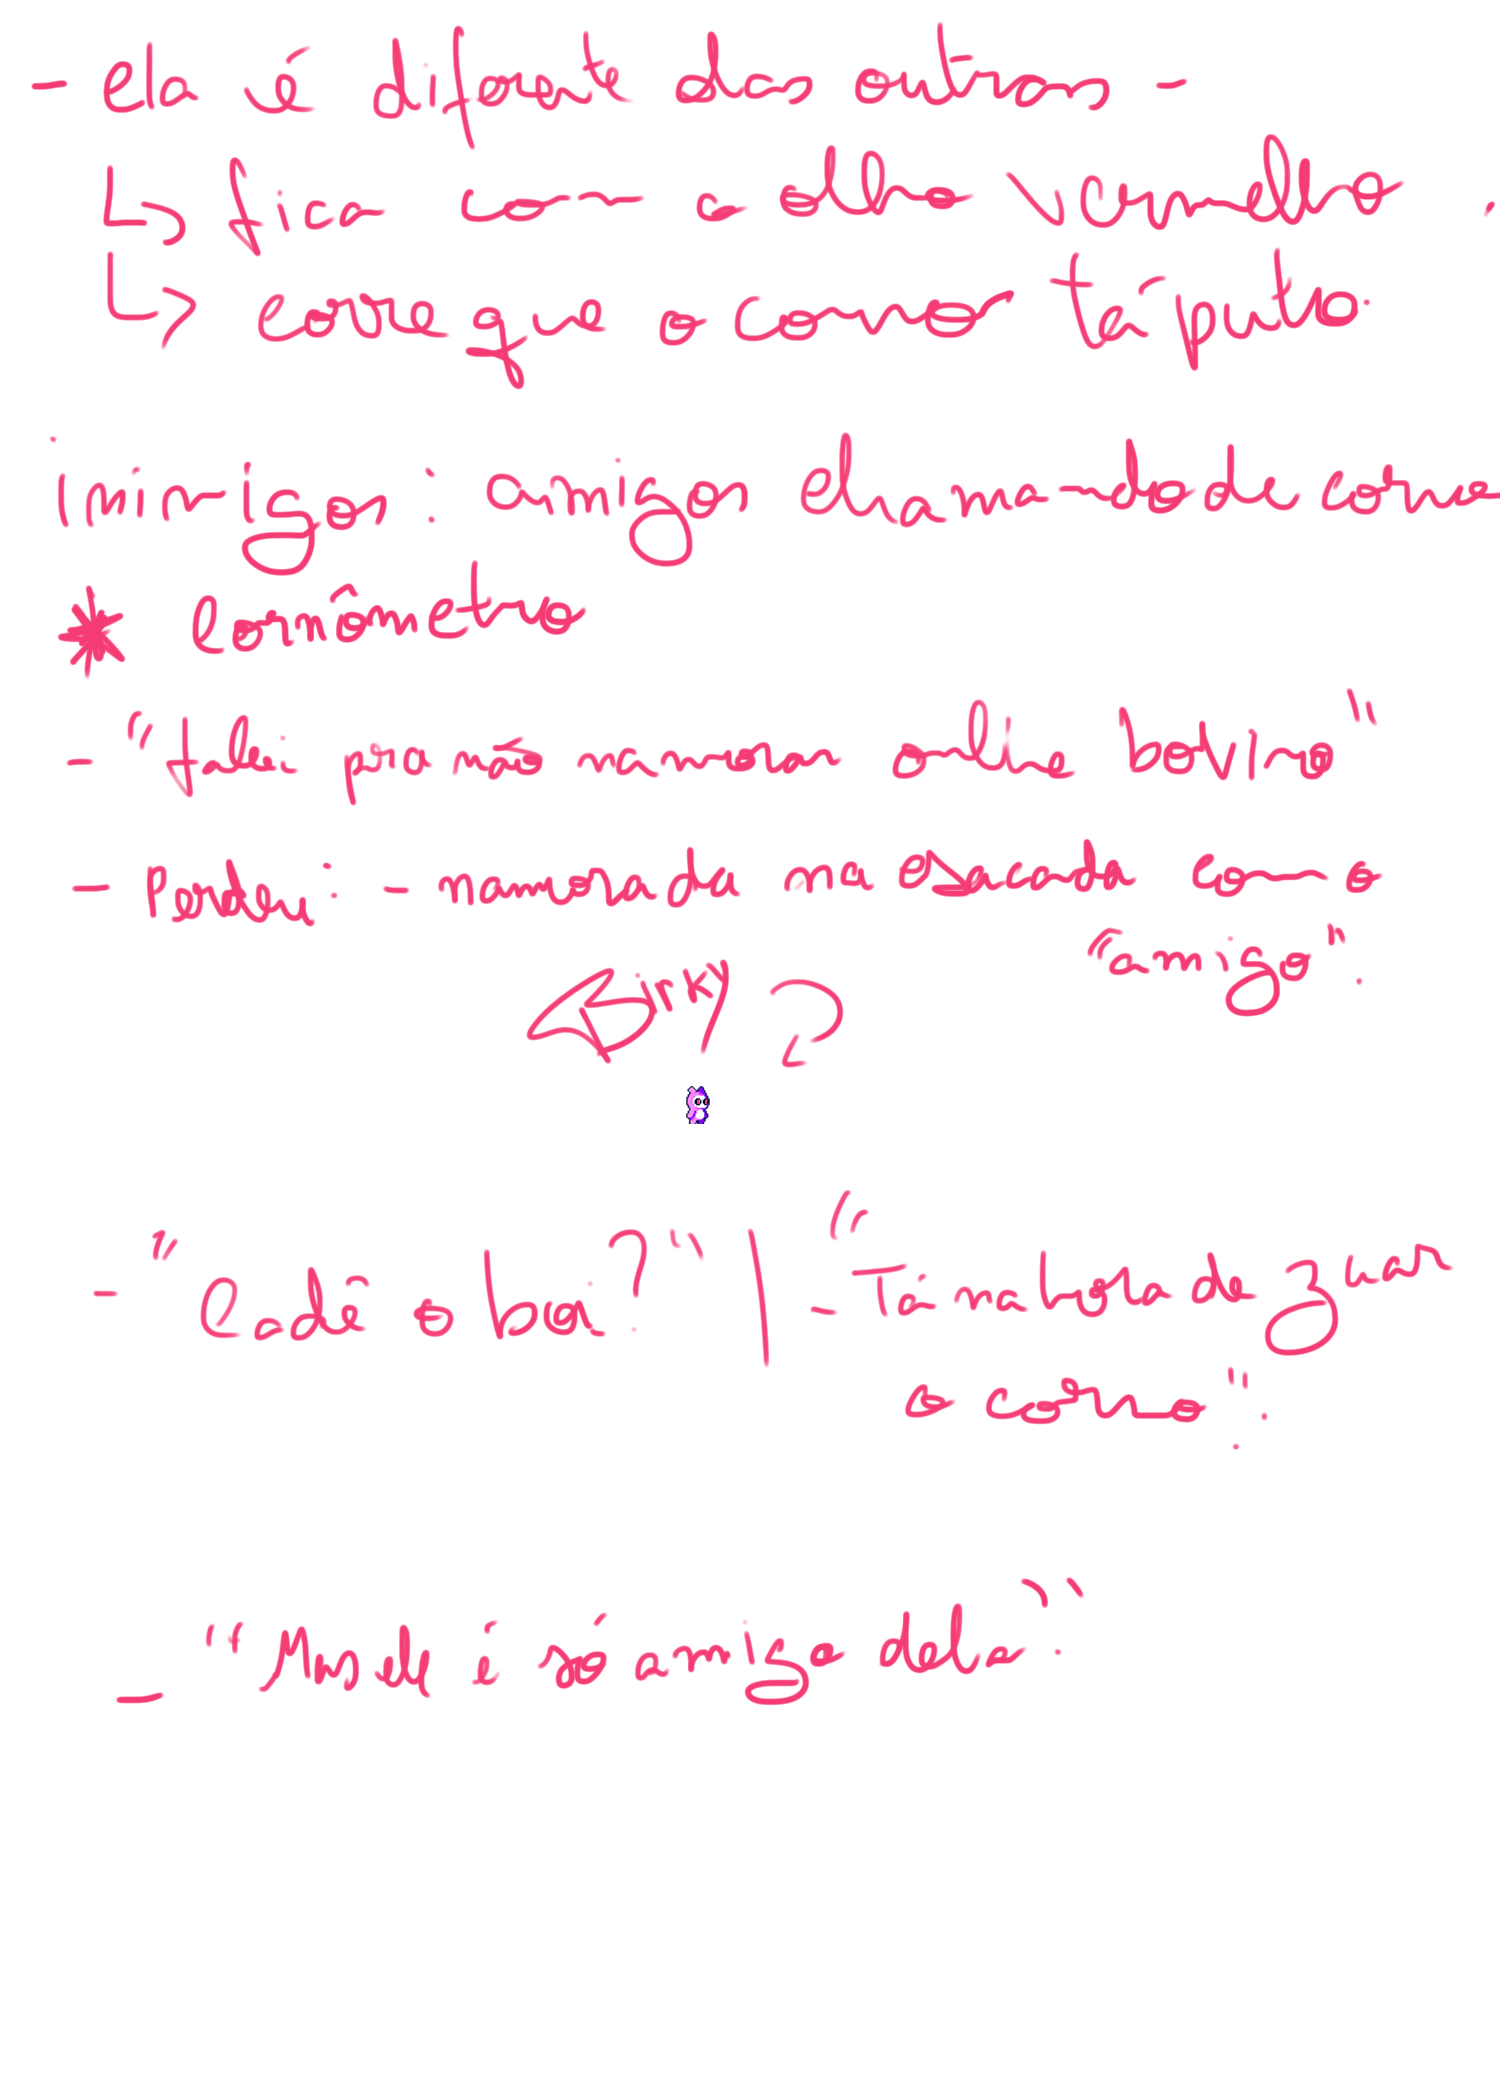 - ela é diferente das outras -
↳ fica com o olho vermelho.
↳ corre que o corno tá puto.
inimigos: amigos chamando de corno
* Cornômetro
- "falei pra não namorar olhe bovino"
- Perdeu: - namorada na escada com o
"amigo".
Birky ?
- "Cadê o boi?" | - "Tá na hora de zuar
o corno".
- "Mas ele é só amigo dela".